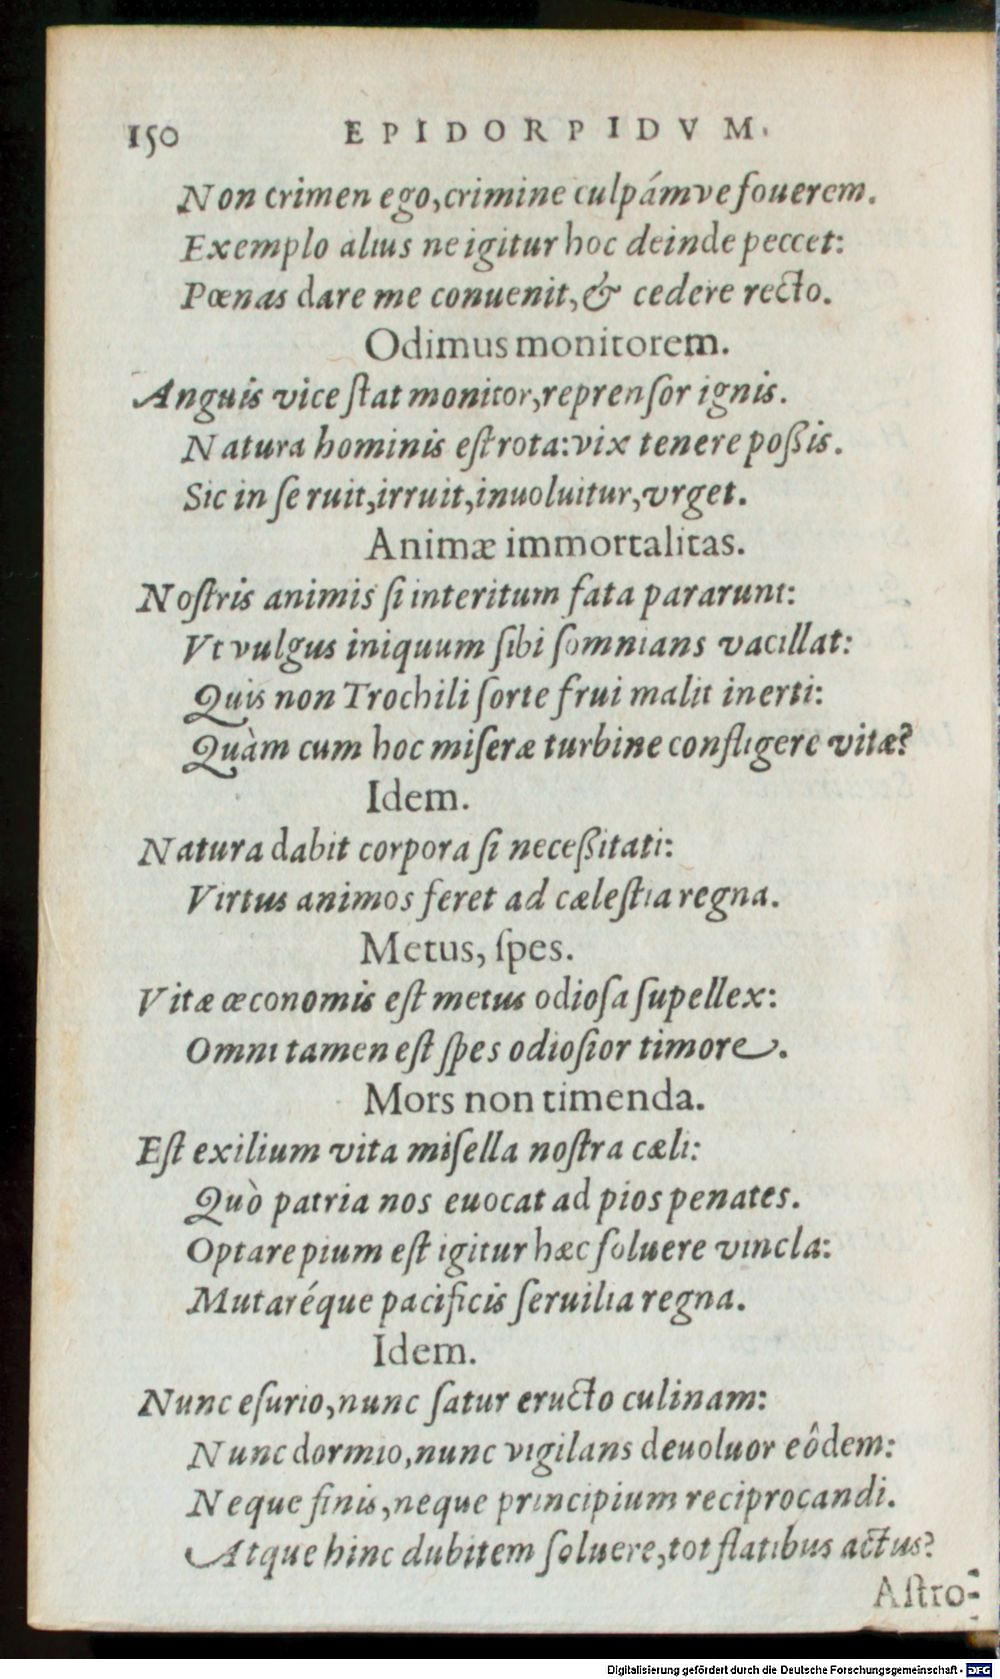 150 EPIDORPIDVM.
Non crimen ego, crimine culpámve fouerem.
Exemplo alius ne igitur hoc deinde peccet:
Pœnas dare me conuenit, & cedere recto.
Odimus monitorem.
Anguis vice ſtat monitor, reprenſor ignis.
Natura hominis eſt rota: vix tenere poßis.
Sic in ſe ruit, irruit, inuoluitur, vrget.
Animæ immortalitas.
Noſtris animis ſi interitum fata pararunt:
Vt vulgus iniquum ſibi ſomnians vacillat:
Quis non Trochili ſorte frui malit inerti:
Quàm cum hoc miſeræ turbine confligere vitæ?
Idem.
Natura dabit corpora ſi neceßitati:
Virtus animos feret ad cæleſtia regna.
Metus, ſpes.
Vitæ œconomis eſt metus odioſa ſupellex:
Omni tamen eſt ſpes odioſior timore.
Mors non timenda.
Eſt exilium vita miſella noſtra cæli:
Quò patria nos euocat ad pios penates.
Optare pium eſt igitur hæc ſoluere vincla:
Mutaréque pacificis ſeruilia regna.
Idem.
Nunc eſurio, nunc ſatur eructo culinam:
Nunc dormio, nunc vigilans deuoluor eôdem:
Neque finis, neque principium reciprocandi.
Atque hinc dubitem ſoluere, tot flatibus actus?
Aſtro-
Digitalisierung gefördert durch die Deutsche Forschungsgemeinschaft - DFG